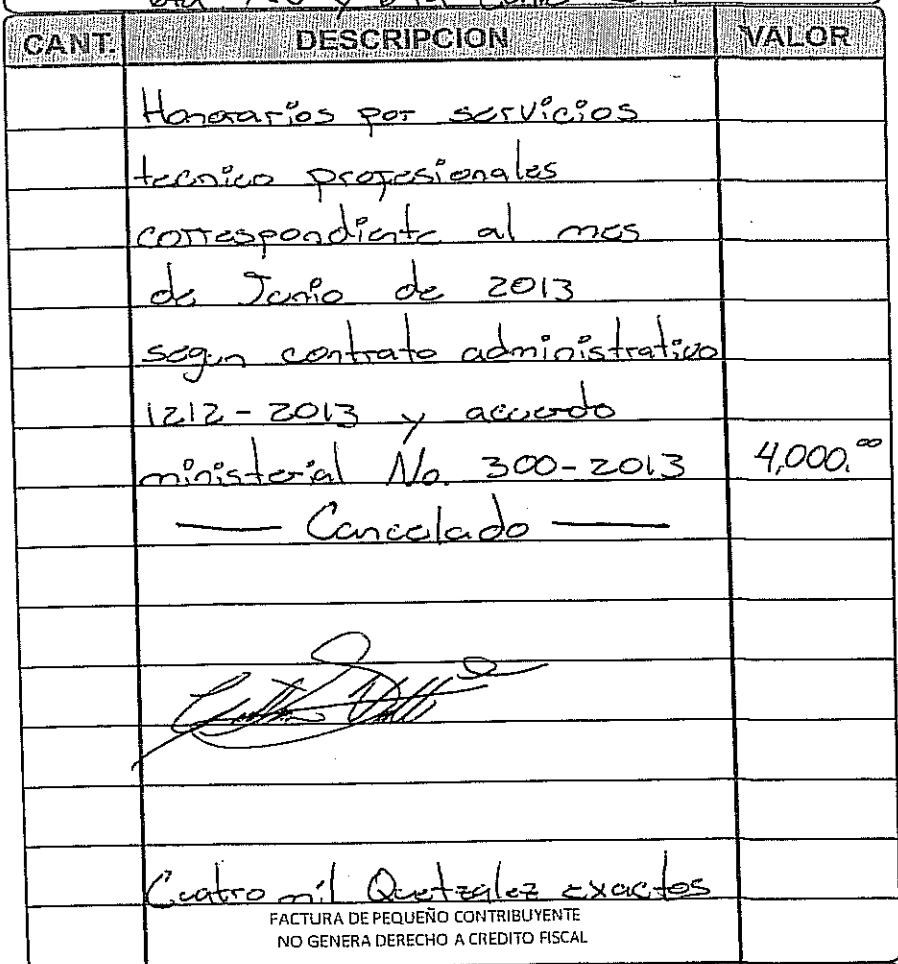 CANT. DESCRIPCION VALOR
Honorarios por servicios
tecnico profesionales
correspondiente al mes
de Junio de 2013
segun contrato administrativo
1212-2013 y acuerdo
ministerial No. 300-2013 4,000.00
— Cancelado —
Cuatro mil Quetzalez exactos
FACTURA DE PEQUEÑO CONTRIBUYENTE
NO GENERA DERECHO A CREDITO FISCAL